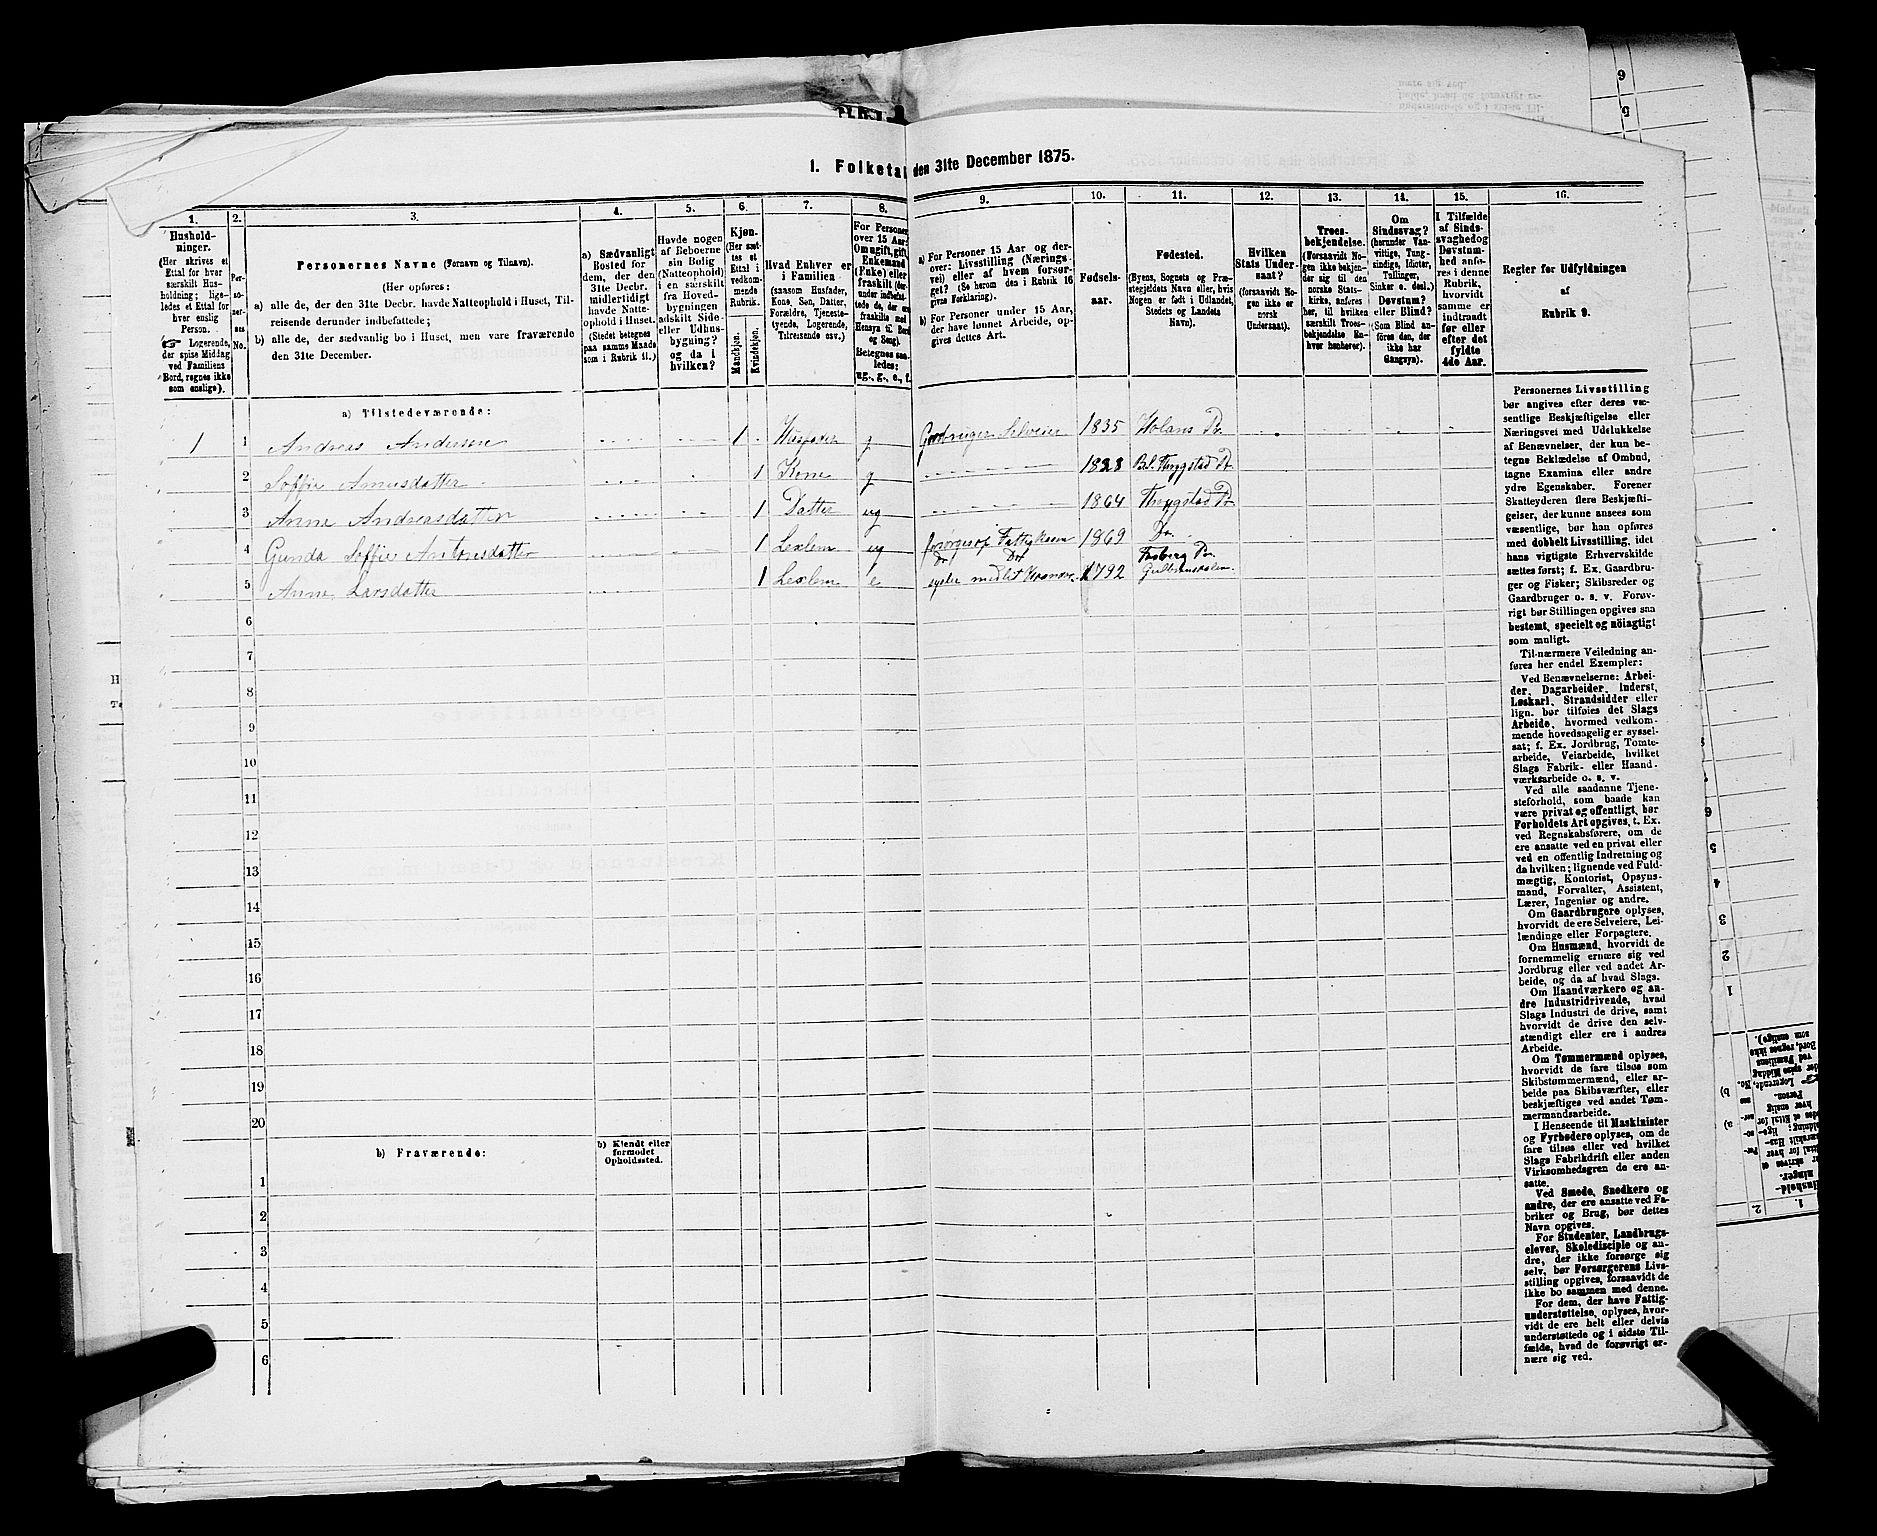 1. Folketal den 31te December 1875.
1. 2. 3. 4. 5. 6. 7. 8. 9. 10. 11. 12. 13. 14. 15. 16.
Hushold-
ninger.
(Her skrives et
Ettal for hver
særskilt Hus-
holdning; lige-
ledes et Ettal for
hver enslig
Person.
☞ Logerende,
der spise Middag
ved Familiens
Bord, regnes ikke
som enslige).
Per-
so-
ner-
nes
No.
Personernes Navne (Fornavn og Tilnavn).
(Her opføres:
a) alle de, der den 31te Decbr. havde Natteophold i Huset, Til-
reisende derunder indbefattede;
b) alle de, der sædvanlig bo i Huset, men vare fraværende
den 31te December.
a) Sædvanligt
Bosted for
dem, der den
31te Decbr.
midlertidigt
havde Natte-
ophold i Huset.
(Stedet betegnes
paa samme Maade
som i Rubrik 11.)
Havde nogen
af Beboerne
sin Bolig
(Natteophold)
i en særskilt
fra Hoved-
bygningen
adskilt Side-
eller Udhus-
bygning?
og da i
hvilken?
Kjøn.
(Her sæt-
tes et
Ettal i
vedkom-
mende
Rubrik.
Mandkjøn.
Kvindekjøn.
Hvad Enhver er
i Familien
(saasom Husfader,
Kone, Søn, Datter,
Forældre, Tjeneste-
tyende, Logerende,
Tilreisende osv.)
For Personer
over 15 Aar:
Om ugift, gift,
Enkemand
(Enke) eller
fraskilt (der-
under indbefat-
tede de, der ere
fraskilte med
Hensyn til Bord
og Seng).
Betegnes saa-
ledes:
ug., g., e., f.
a) For Personer 15 Aar og der-
over: Livsstilling (Nærings-
vei) eller af hvem forsør-
get? (Se herom den i Rubrik 16
givne Forklaring).
b) For Personer under 15 Aar,
der have lønnet Arbeide, op-
gives dettes Art.
Fødsels-
aar.
Fødested.
(Byens, Sognets og Præ-
stegjeldets Navn eller, hvis
Nogen er født i Udlandet,
Stedets og Landets
Navn).
Hvilken
Stats Under-
saat?
(forsaavidt No-
gen ikke er
norsk
Undersaat).
Troes-
bekjendelse.
(Forsaavidt No-
gen ikke bekjen-
der sig til den
norske Stats-
kirke, anføres
her, til hvilken
særskilt Troes-
bekjendelse En-
hver henhører).
Om
Sindssvag?
(herunder Van-
vittige, Tung-
sindige, Idioter,
Tullinger,
Sinker o. desl.)
Døvstum?
eller Blind?
(Som Blind an-
føres den, der
ikke har
Gangsyn).
I Tilfælde
af Sinds-
svaghedog
Døvstum-
hed anfø-
res i denne
Rubrik,
hvorvidt
samme er
indtraadt
før eller
efter det
fyldte
4de Aar.
Regler for Udfyldningen
af
Rubrik 9.
a) Tilstedeværende:
1 1 Andreas Andersen 1 Husfader g Gardbruger Selveier 1835 Holans Pr.
2 Soffie Amusdatter 1 Kone g 1828 Bl. Thrygstad Pr
3 Anne Andreasdatter 1 Datter ug 1864 Thrygstad Pr
4 Gunda Soffie Antonsdatter 1 Leslem ug forsørges af Fattigkasen 1869 Do.
5 Anne Larsdatter 1 Leslem e Do Do 1792 Froberg Pr. Gulbransdalen
6
7
8
9
10
11
12
13
14
15
16
17
18
19
20
b) Fraværende:
b) Kjendt eller
formodet
Opholdssted.
1
2
3
4
5
6
Personernes Livsstilling
bør angives efter deres væ-
sentlige Beskjæftigelse eller
Næringsvei med Udelukkelse
af Benævnelser, der kun be-
tegne Beklædelse af Ombud,
tagne Examina eller andre
ydre Egenskaber. Forener
Skatteyderen flere Beskjæfti-
gelser, der kunne ansees som
væsentlige, bør han opføres
med dobbelt Livsstilling, idet
hans vigtigste Erhvervskilde
sættes først; f. Ex. Gaardbru-
ger og Fisker; Skibsreder og
Gaardbruger o. s. v. Forøv-
rigt bør Stillingen opgives saa
bestemt, specielt og nöiagtigt
som muligt.
Til nærmere Veiledning an-
føres her endel Exempler:
Ved Benævnelserne: Arbei-
der, Dagarbeider, Inderst,
Løskarl, Strandsidder eller
lign. bør tilføies det Slags
Arbeide, hvormed vedkom-
mende hovedsagelig er syssel-
sat; f. Ex. Jordbrug, Tomte-
arbeide, Veiarbeide, hvilket
Slags Fabrik- eller Haand-
værksarbeide o. s. v.
Ved alle saadanne Tjene-
steforhold, som baade kan
være privat og offentligt, bør
Forholdets Art opgives, t. Ex.
ved Regnskabsførere, om de
ere ansatte ved en privat eller
ved en offentlig Indretning og
da hvilken; lignende ved Fuld-
mægtig, Kontorist, Opsyns-
mand, Forvalter, Assistent,
Lærer, Ingeniør og andre.
Om Gaardbrugere oplyses,
hvorvidt de ere Selveiere, Lei-
lændinge eller Forpagtere.
Om Husmænd, hvorvidt de
fornemmelig ernære sig ved
Jordbrug eller ved andet Ar-
beide, og da af hvad Slags.
Om Haandværkere og an-
dre Industridrivende, hvad
Slags Industri de drive, samt
hvorvidt de drive den selv-
stændigt eller ere i andres
Arbeide.
Om Tømmermænd oplyses,
hvorvidt de fare tilsøs som
Skibstømmermænd, eller ar-
beide paa Skibsværfter, eller
beskjæftiges ved andet Tøm-
mermandsarbeide.
I Henseende til Maskinister
og Fyrbødere oplyses, om de
fare tilsøs eller ved hvilket
Slags Fabrikdrift eller anden
Virksomhedsgren de ere an-
satte.
Ved Smede, Snedkere og
andre, der ere ansatte ved Fa-
briker og Brug, bør dettes
Navn opgives.
For Studenter, Landbrugs-
elever, Skoledisciple og an-
dre, der ikke forsørge sig
selv, bør Forsørgerens Livs-
stilling opgives, forsaavidt de
ikke bo sammen med denne.
For dem, der have Fattig-
understøttelse, oplyses, hvor-
vidt de ere helt eller delvis
understøttede og i sidste Til-
fælde, hvad de forøvrigt er-
nære sig ved.